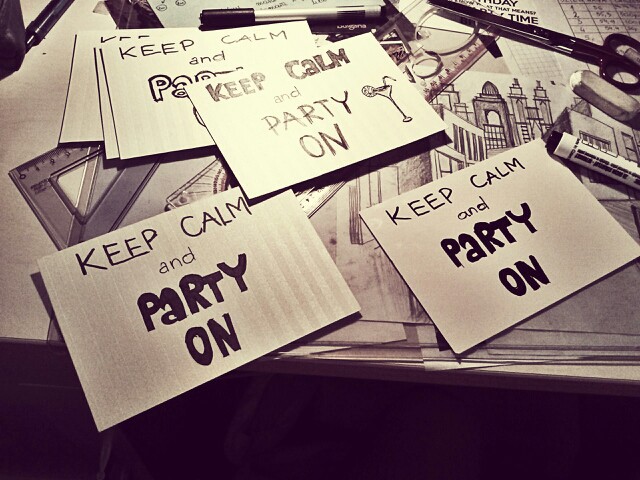 KEEP CALM
and
PaRTY
KEEP CaLM
and
PARTY
ON
KEEP CALM
and
PaRTY
ON
KEEP CALM
and
PaRTY
ON
THAT MEANS?
TIME